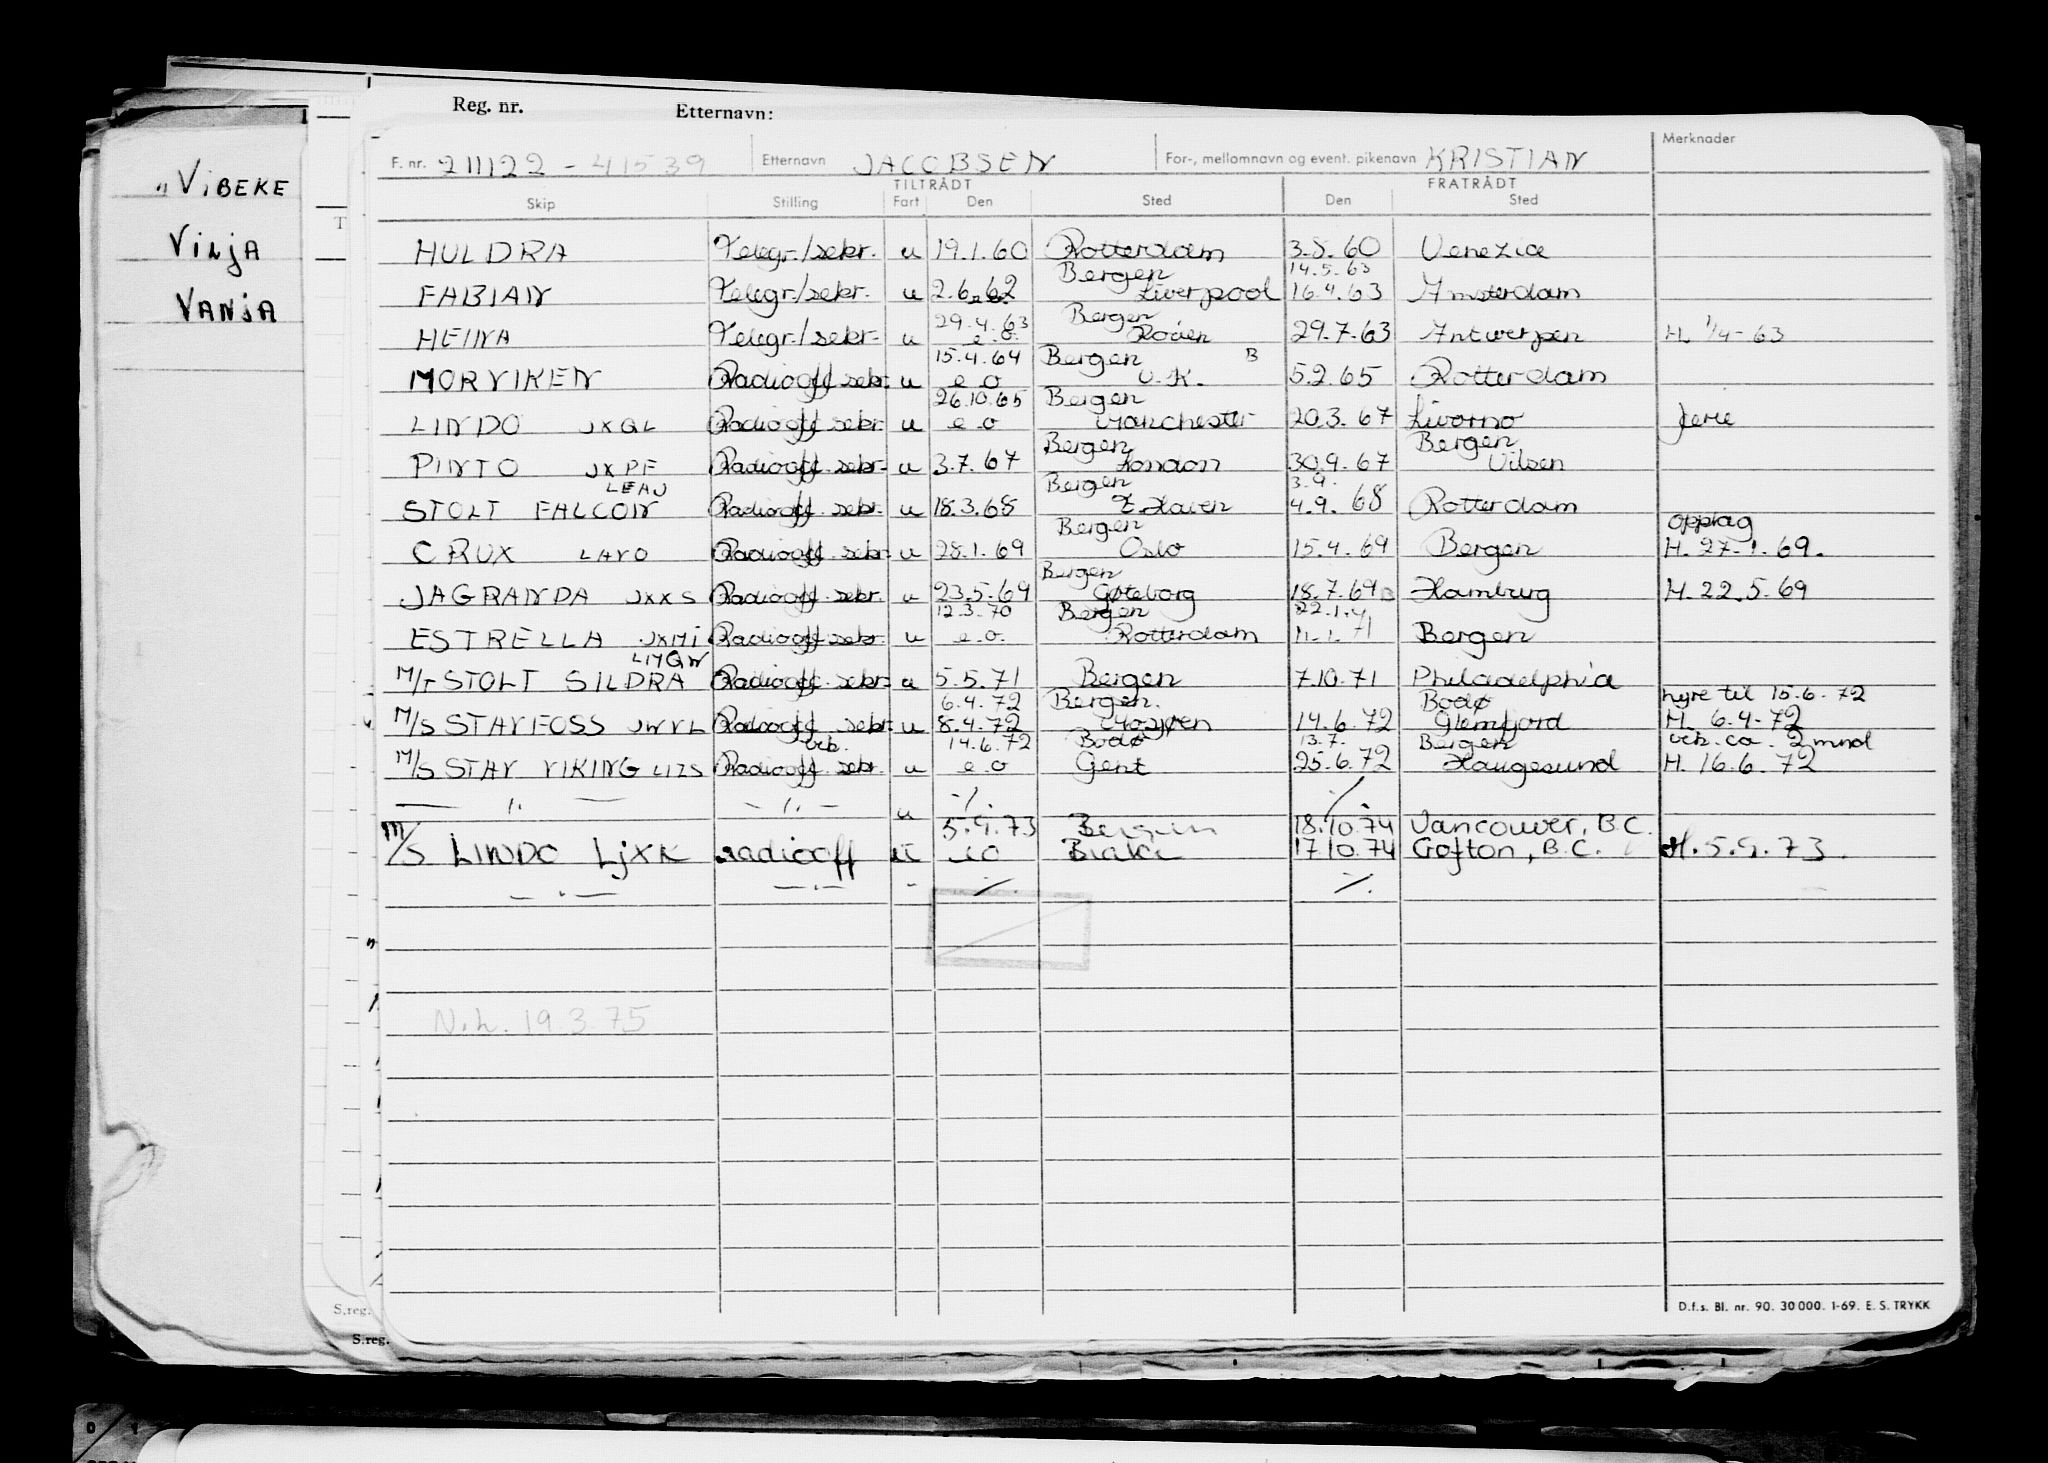 Reg. nr. Etternavn:
"VIBEKE
VILJA
VANJA
Merknader
F. nr. 211122 - 41539 Etternavn JACOBSEN For-, mellomnavn og event. pikenavn KRISTIAN
TILTRÅDT FRATRÅDT
Skip Stilling Fart Den Sted Den Sted
HULDRA Telegr./sekr. u 19.1.60 Rotterdam 3.8.60 Venezia
Bergen 14.5.63
FABIAN Telegr./sekr. u 2.6.62 Liverpool 16.4.63 Amsterdam
29.4.63 Bergen
HEINA Telegr./sekr. u e.o. Rouen 29.7.63 Antwerpen H. 1/4-63
15.4.64 Bergen B
MORVIKEN Radiooff sekr. u e o U.K. 5.2.65 Rotterdam
26.10.65 Bergen
LINDO JXQL Radiooff sekr. u e o Manchester 20.3.67 Livorno ferie
Bergen Bergen
PINTO JXPF Radiooff. sekr. u 3.7.67 London 30.9.67
LEAU Bergen 3.9.
STOLT FALCON Radiooff. sekr. u 18.3.68 4.9.68 Rotterdam
Bergen opplag
CRUX LAYO Radiooff. sekr. u 28.1.69 Oslo 15.4.69 Bergen H. 27.1.69.
Bergen
JAGRANDA JXXS Radiooff. sekr. u 23.5.69 Gøteborg 18.7.69 B Hamburg H. 22.5.69
12.3.70 Bergen 22.1.71
ESTRELLA JXMI Radiooff sekr. u e.o. Rotterdam 11.1.71 Bergen
LMQW
M/T STOLT SILDRA Radiooff. sekr. u 5.5.71 Bergen 7.10.71 Philadelphia
6.4.72 Bergen. Bodø hyre til 15.6.72
M/S STAVFOSS JWVL Radiooff sekr. u 8.4.72 Mosjøen 14.6.72 Glomfjord H. 6.4.72
vik. 14.6.72 Bodø 13.7. Bergen vik. ca. 2 mnd
M/S STAV VIKING LIZS Radiooff sekr. u e o Gent 25.6.72 Haugesund H. 16.6.72
— " — — " — u -/. ./.
5.9.73 Bergen 18.10.74 Vancouver, B.C.
M/S LINDO LJXK radiooff u eo Brake 17.10.74 Crofton, B.C. H. 5.9.73.
— " — — " — - ./. ./.
N.h. 19.3.75
S.reg.
S.reg.
D.f.s. Bl. nr. 90. 30 000. 1-69. E. S. TRYKK